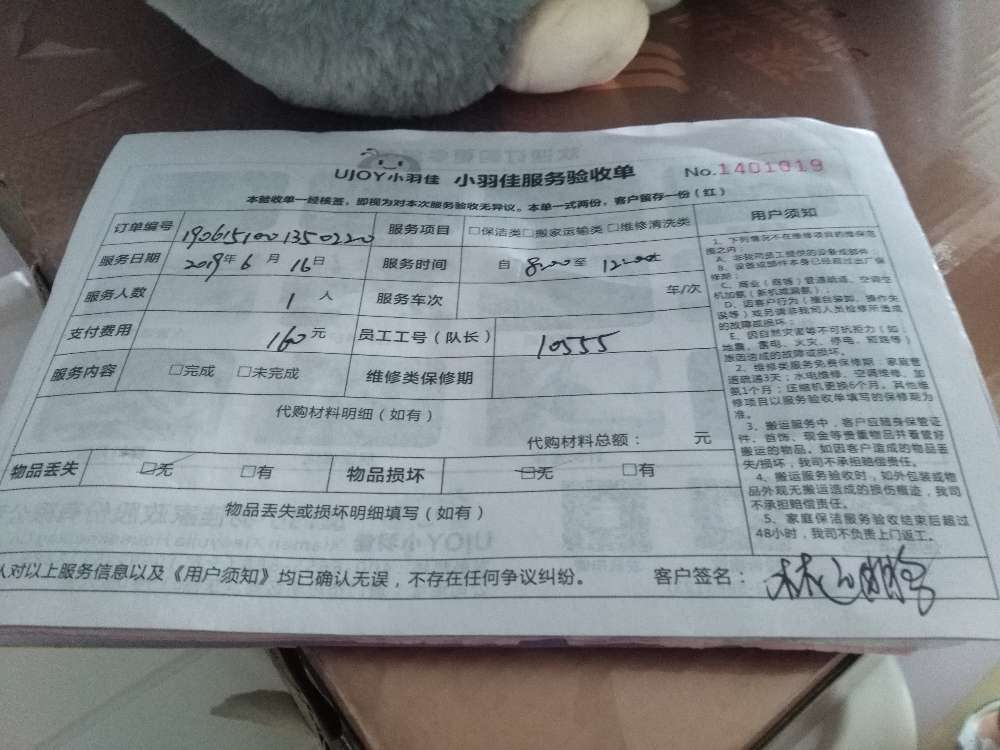 UJOY小羽佳 小羽佳服务验收单 No.1401019
本验收单一经核签，即视为对本次服务验收无异议。本单一式两份，客户留存一份（红）
订单编号 1906151001350220 服务项目 □保洁类□搬家运输类 □维修清洗类
服务日期 2019年 6 月 16日 服务时间 自 8:00 至 12:00
服务人数 1 人 服务车次 年/次
支付费用 160元 员工工号（队长） 10555
服务内容 □完成 □未完成 维修类保修期
代购材料明细（如有）
代购材料总额： 元
物品丢失 □无 □有 物品损坏 □无 □有
物品丢失或损坏明细填写（如有）
人对以上服务信息以及《用户须知》均已确认无误，不存在任何争议纠纷。 客户签名：
用户须知
1、下列情况不在维修项目的维保范
围之内：
A、非我司员工提供的设备或部件
B、设备或部件本身已经超过出厂保
修期；
C、商业（商等）管道疏通、空调空
机加氨（新机或漏氨）；
D、因客户行为（擅自装卸、操作失
误等）或另请非我司人员检修所造成
的故障或损坏；
E、因自然灾害等不可抗拒力（如：
地震、雷电、火灾、停电、短路等）
原因造成的故障或损坏。
2、维修类服务免费保修期：家庭管
道疏通3天；水电维修、空调维修、加
氨1个月；压缩机更换6个月。其他维
修项目以服务验收单填写的保修期为
准。
3、搬运服务中，客户应随身保管证
件、首饰、现金等贵重物品并看管好
搬运的物品。如因客户造成的物品丢
失/损坏，我司不承担赔偿责任。
4、搬运服务验收时，如外包装或物
品外观无搬运造成的损伤痕迹，我司
不承担赔偿责任。
5、家庭保洁服务验收结束后超过
48小时，我司不负责上门返工。